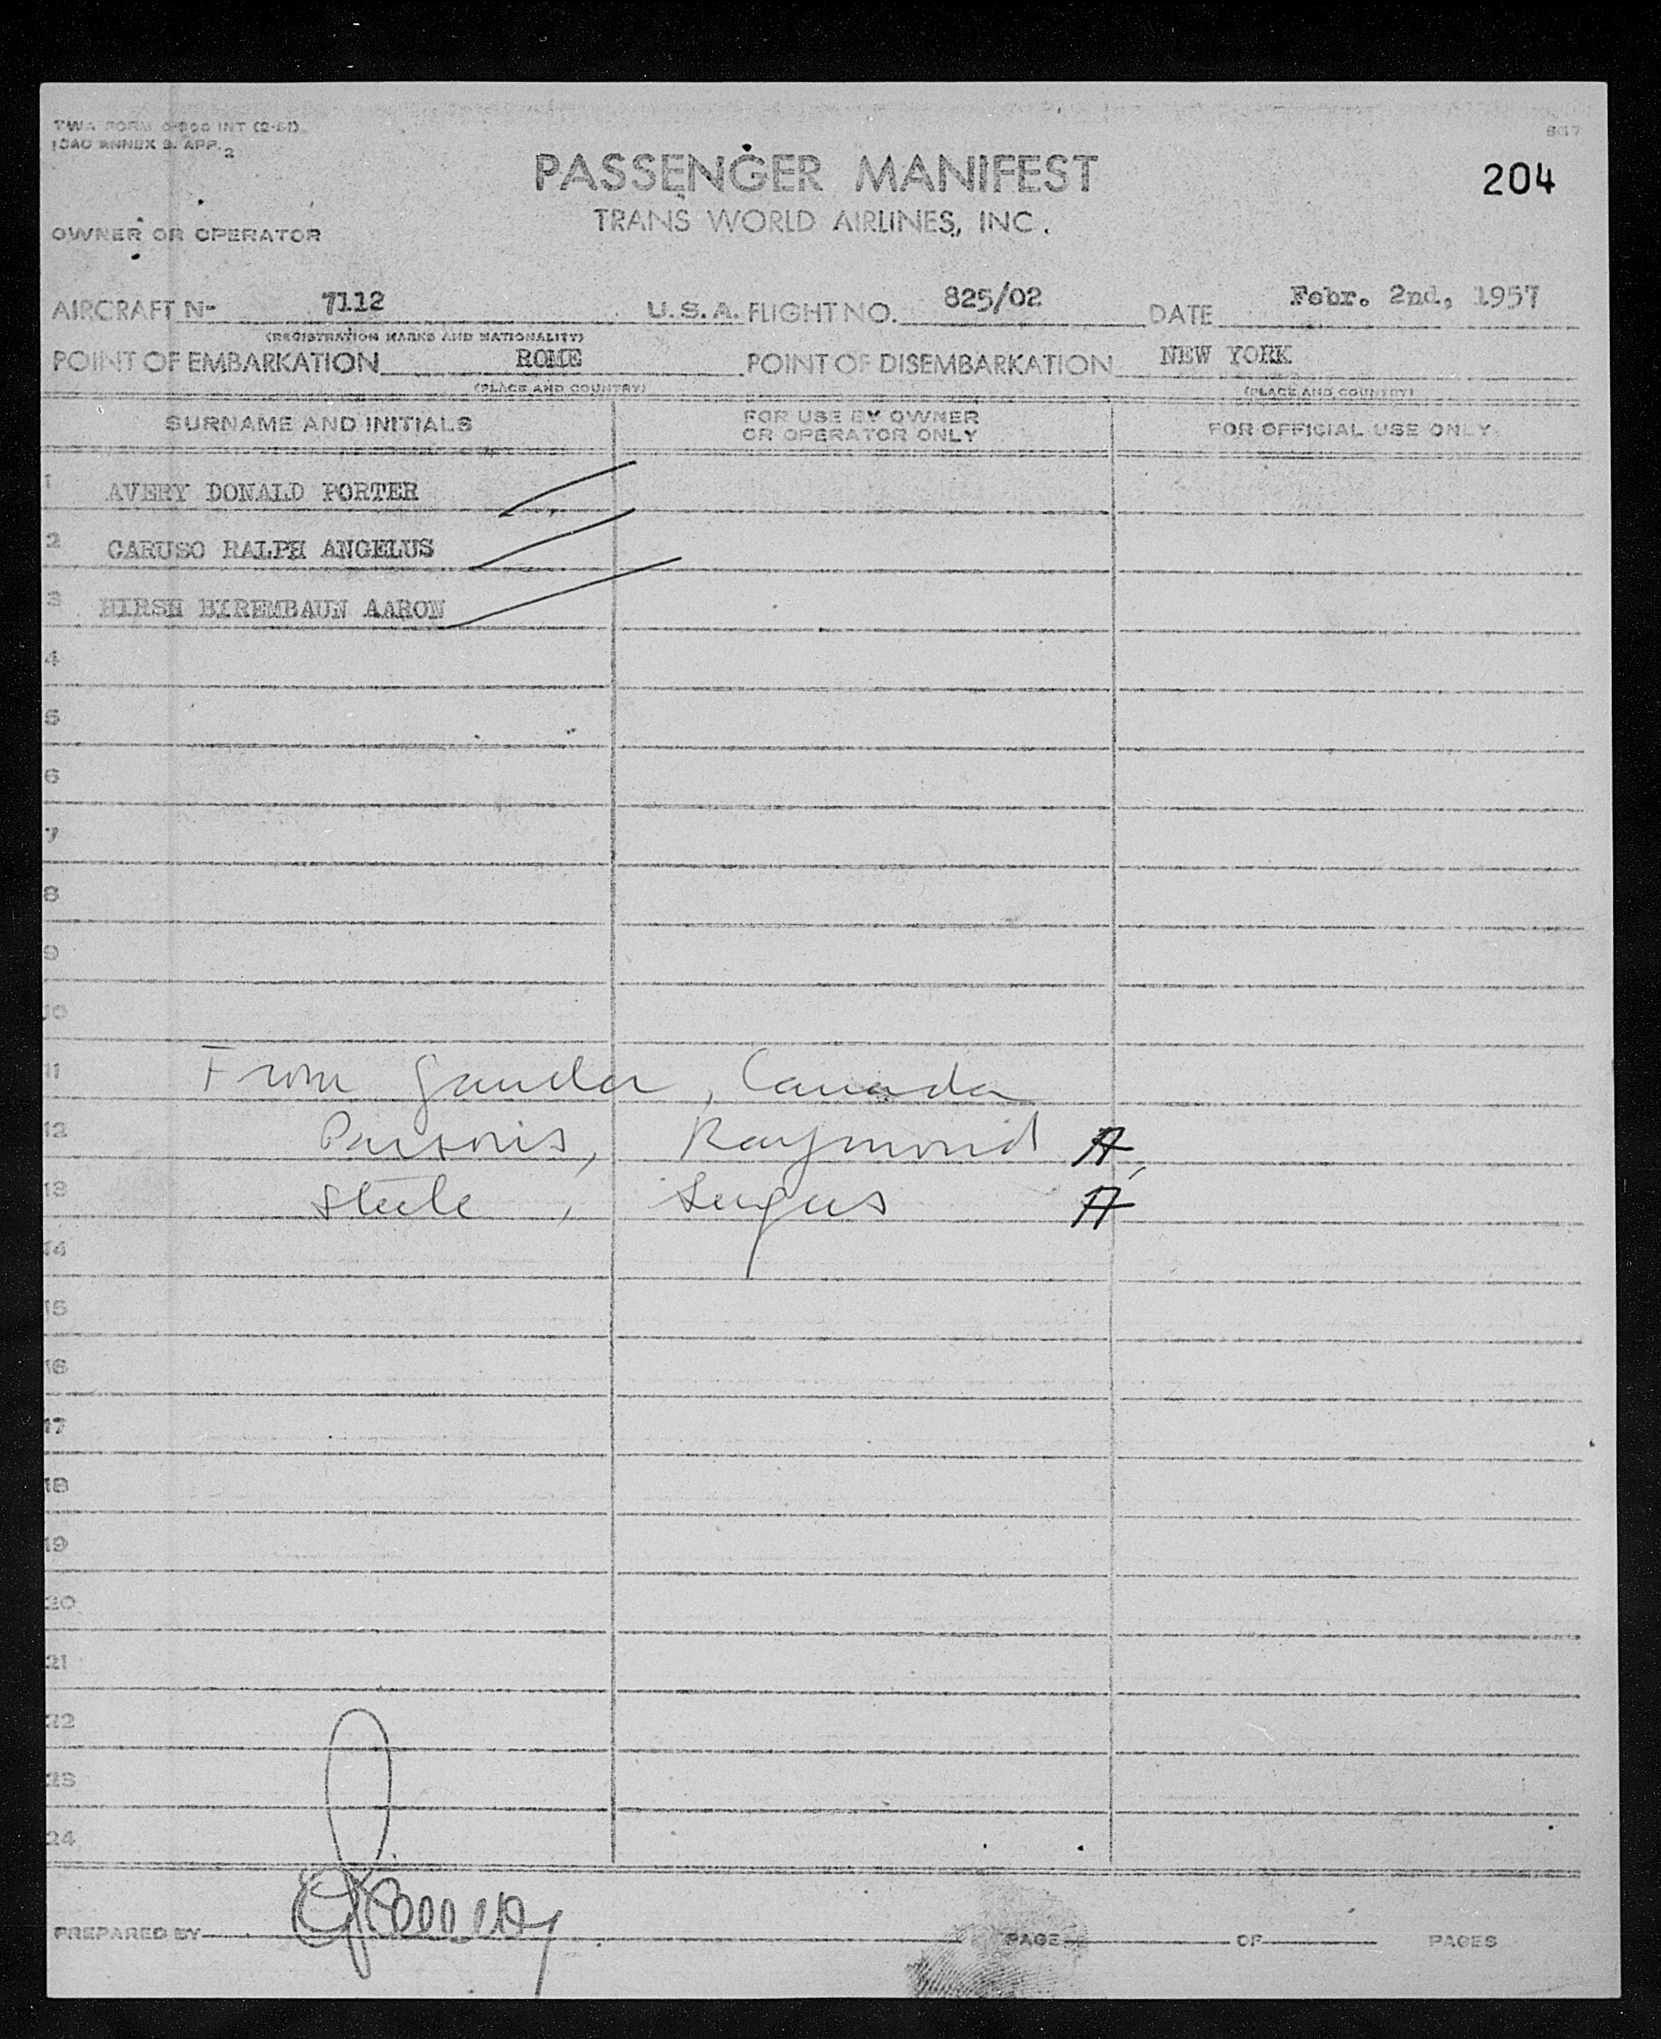 TWA FORM O-806 INT (2-51)
ICAO ANNEX 9. APP. 2
PASSENGER MANIFEST
204
TRANS WORLD AIRLINES, INC.
OWNER OR OPERATOR
AIRCRAFT No 7112 U.S.A. FLIGHT NO. 825/02 DATE Febr. 2nd, 1957
(REGISTRATION MARKS AND NATIONALITY)
POINT OF EMBARKATION ROME POINT OF DISEMBARKATION NEW YORK
(PLACE AND COUNTRY) (PLACE AND COUNTRY)
SURNAME AND INITIALS FOR USE BY OWNER OR OPERATOR ONLY FOR OFFICIAL USE ONLY
1 AVERY DONALD PORTER
2 CARUSO RALPH ANGELUS
3 HIRSH BIREMBAUN AARON
4
5
6
7
8
9
10
11 From Gander, Canada
12 Parsons, Raymond A
13 Steele, A
14
15
16
17
18
19
20
21
22
23
24
PREPARED BY PAGE OF PAGES